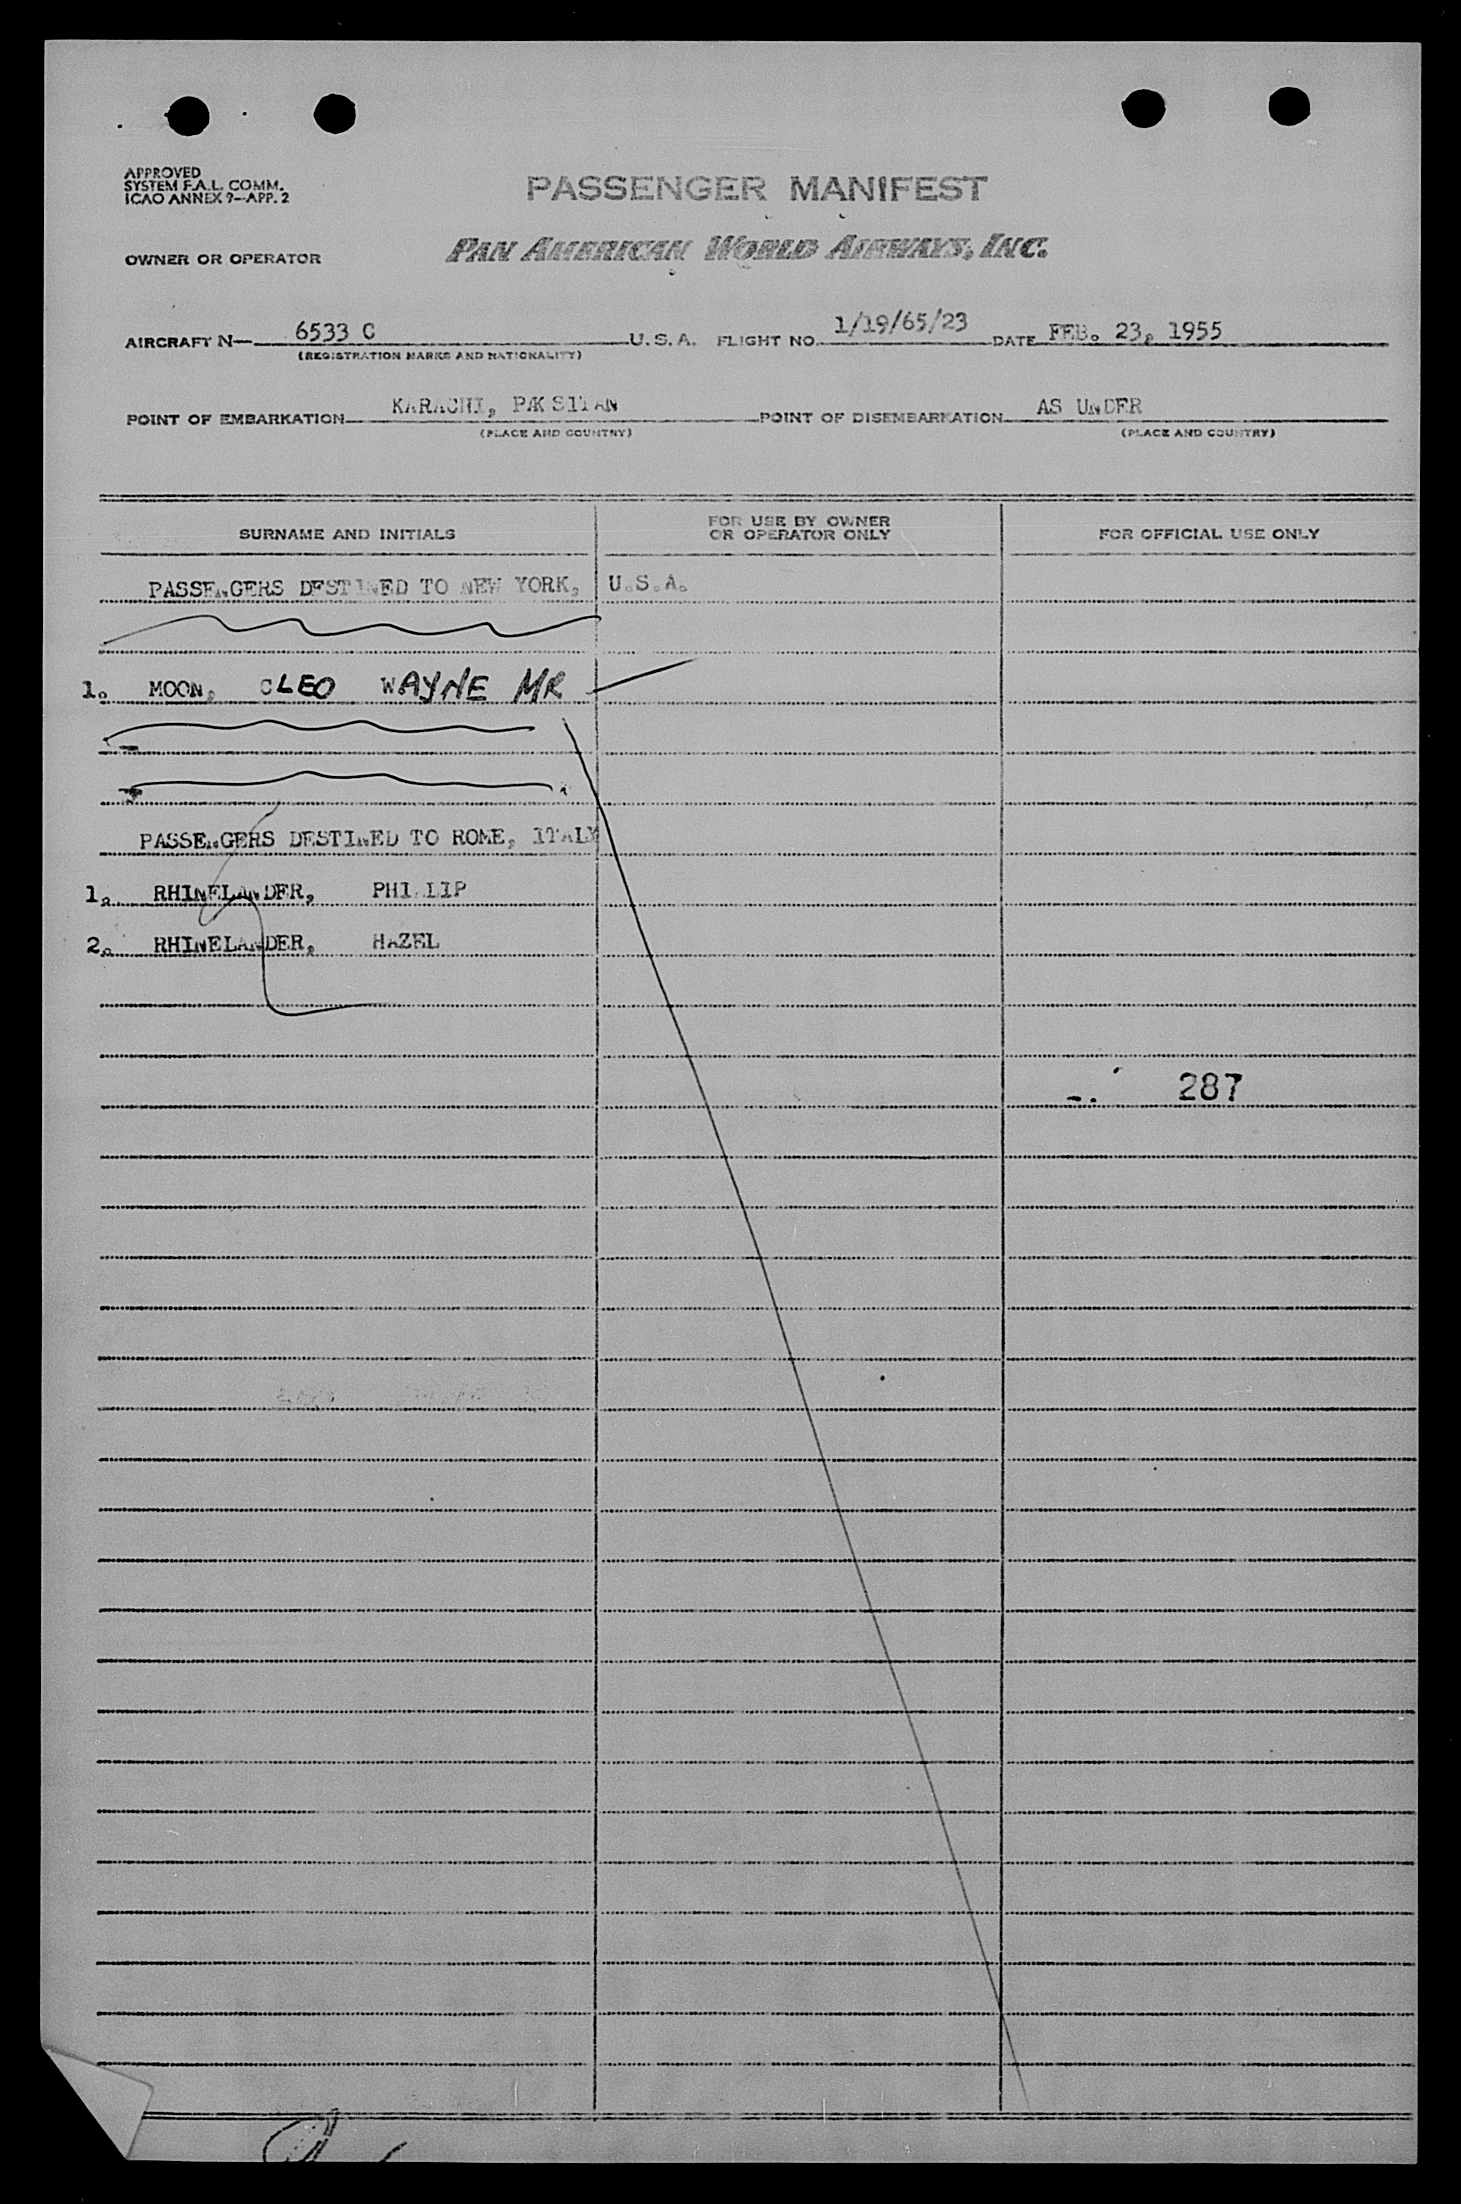 APPROVED
SYSTEM F.A.L. COMM.
ICAO ANNEX 9-APP. 2
PASSENGER MANIFEST
OWNER OR OPERATOR PAN AMERICAN WORLD AIRWAYS, INC.
AIRCRAFT N- 6533 C U.S.A. FLIGHT NO. 1/19/65/23 DATE FEB. 23, 1955
(REGISTRATION MARKS AND NATIONALITY)
POINT OF EMBARKATION KARACHI, PAKSITAN POINT OF DISEMBARKATION AS UNDER
(PLACE AND COUNTRY) (PLACE AND COUNTRY)
SURNAME AND INITIALS FOR USE BY OWNER OR OPERATOR ONLY FOR OFFICIAL USE ONLY
PASSENGERS DESTINED TO NEW YORK, U.S.A.
1. MOON, CLEO WAYNE MR
PASSENGERS DESTINED TO ROME, ITALY
1. RHINELANDER, PHILLIP
2. RHINELANDER, HAZEL
287